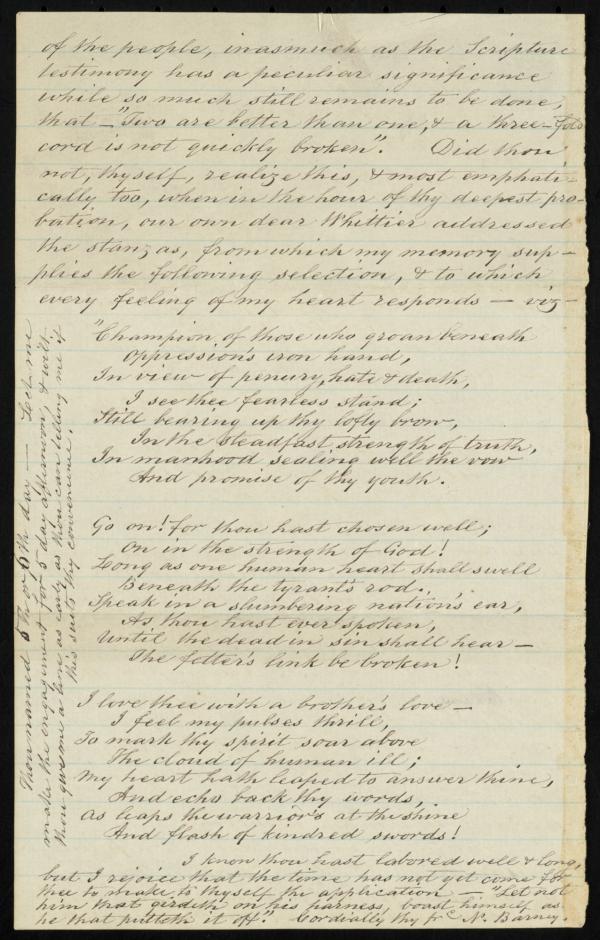 of the people, inasmuch as the Scripture
testimony has a peculiar significance
while so much still remains to be done,
that — "Two are better than one, & a three-fold
cord is not quickly broken". Did thou
not, thyself, realize this, & most emphati-
cally too, when in the hour of thy deepest pro-
bation, our own dear Whittier addressed
the stanzas, from which my memory sup-
plies the following selection, & to which
every feeling of my heart responds — viz —
"Champion of those who groan beneath
Oppression's iron hand,
In view of penury, hate & death,
I see thee fearless stand;
Still bearing up thy lofty brow,
In the steadfast strength of truth,
In manhood sealing well the vow
And promise of thy youth.
Go on! for thou hast chosen well;
On in the strength of God!
Long as one human heart shall swell
Beneath the tyrant's rod.,
Speak in a slumbering nation's ear,
As thou hast ever spoken,
Until the dead in sin shall hear —
The fetter's link be broken!
I love thee with a brother's love —
I feel my pulses thrill,
To mark thy spirit soar above
The cloud of human ill;
My heart hath leaped to answer thine,
And echo back thy words,
As leaps the warrior's at the shine
And flash of kindred swords!
I know thou hast labored well & long,
but I rejoice that the time has not yet come for
thee to make to thyself the application — "Let not
him that girdeth on his harness, boast himself as
he that putteth it off". Cordially thy frd N. Barney.
Thou named 5th or 6th day — Let me
make the engagement for 5 day afternoon, & will
thou give me a line as early as thou can telling me if
this suits thy convenience.